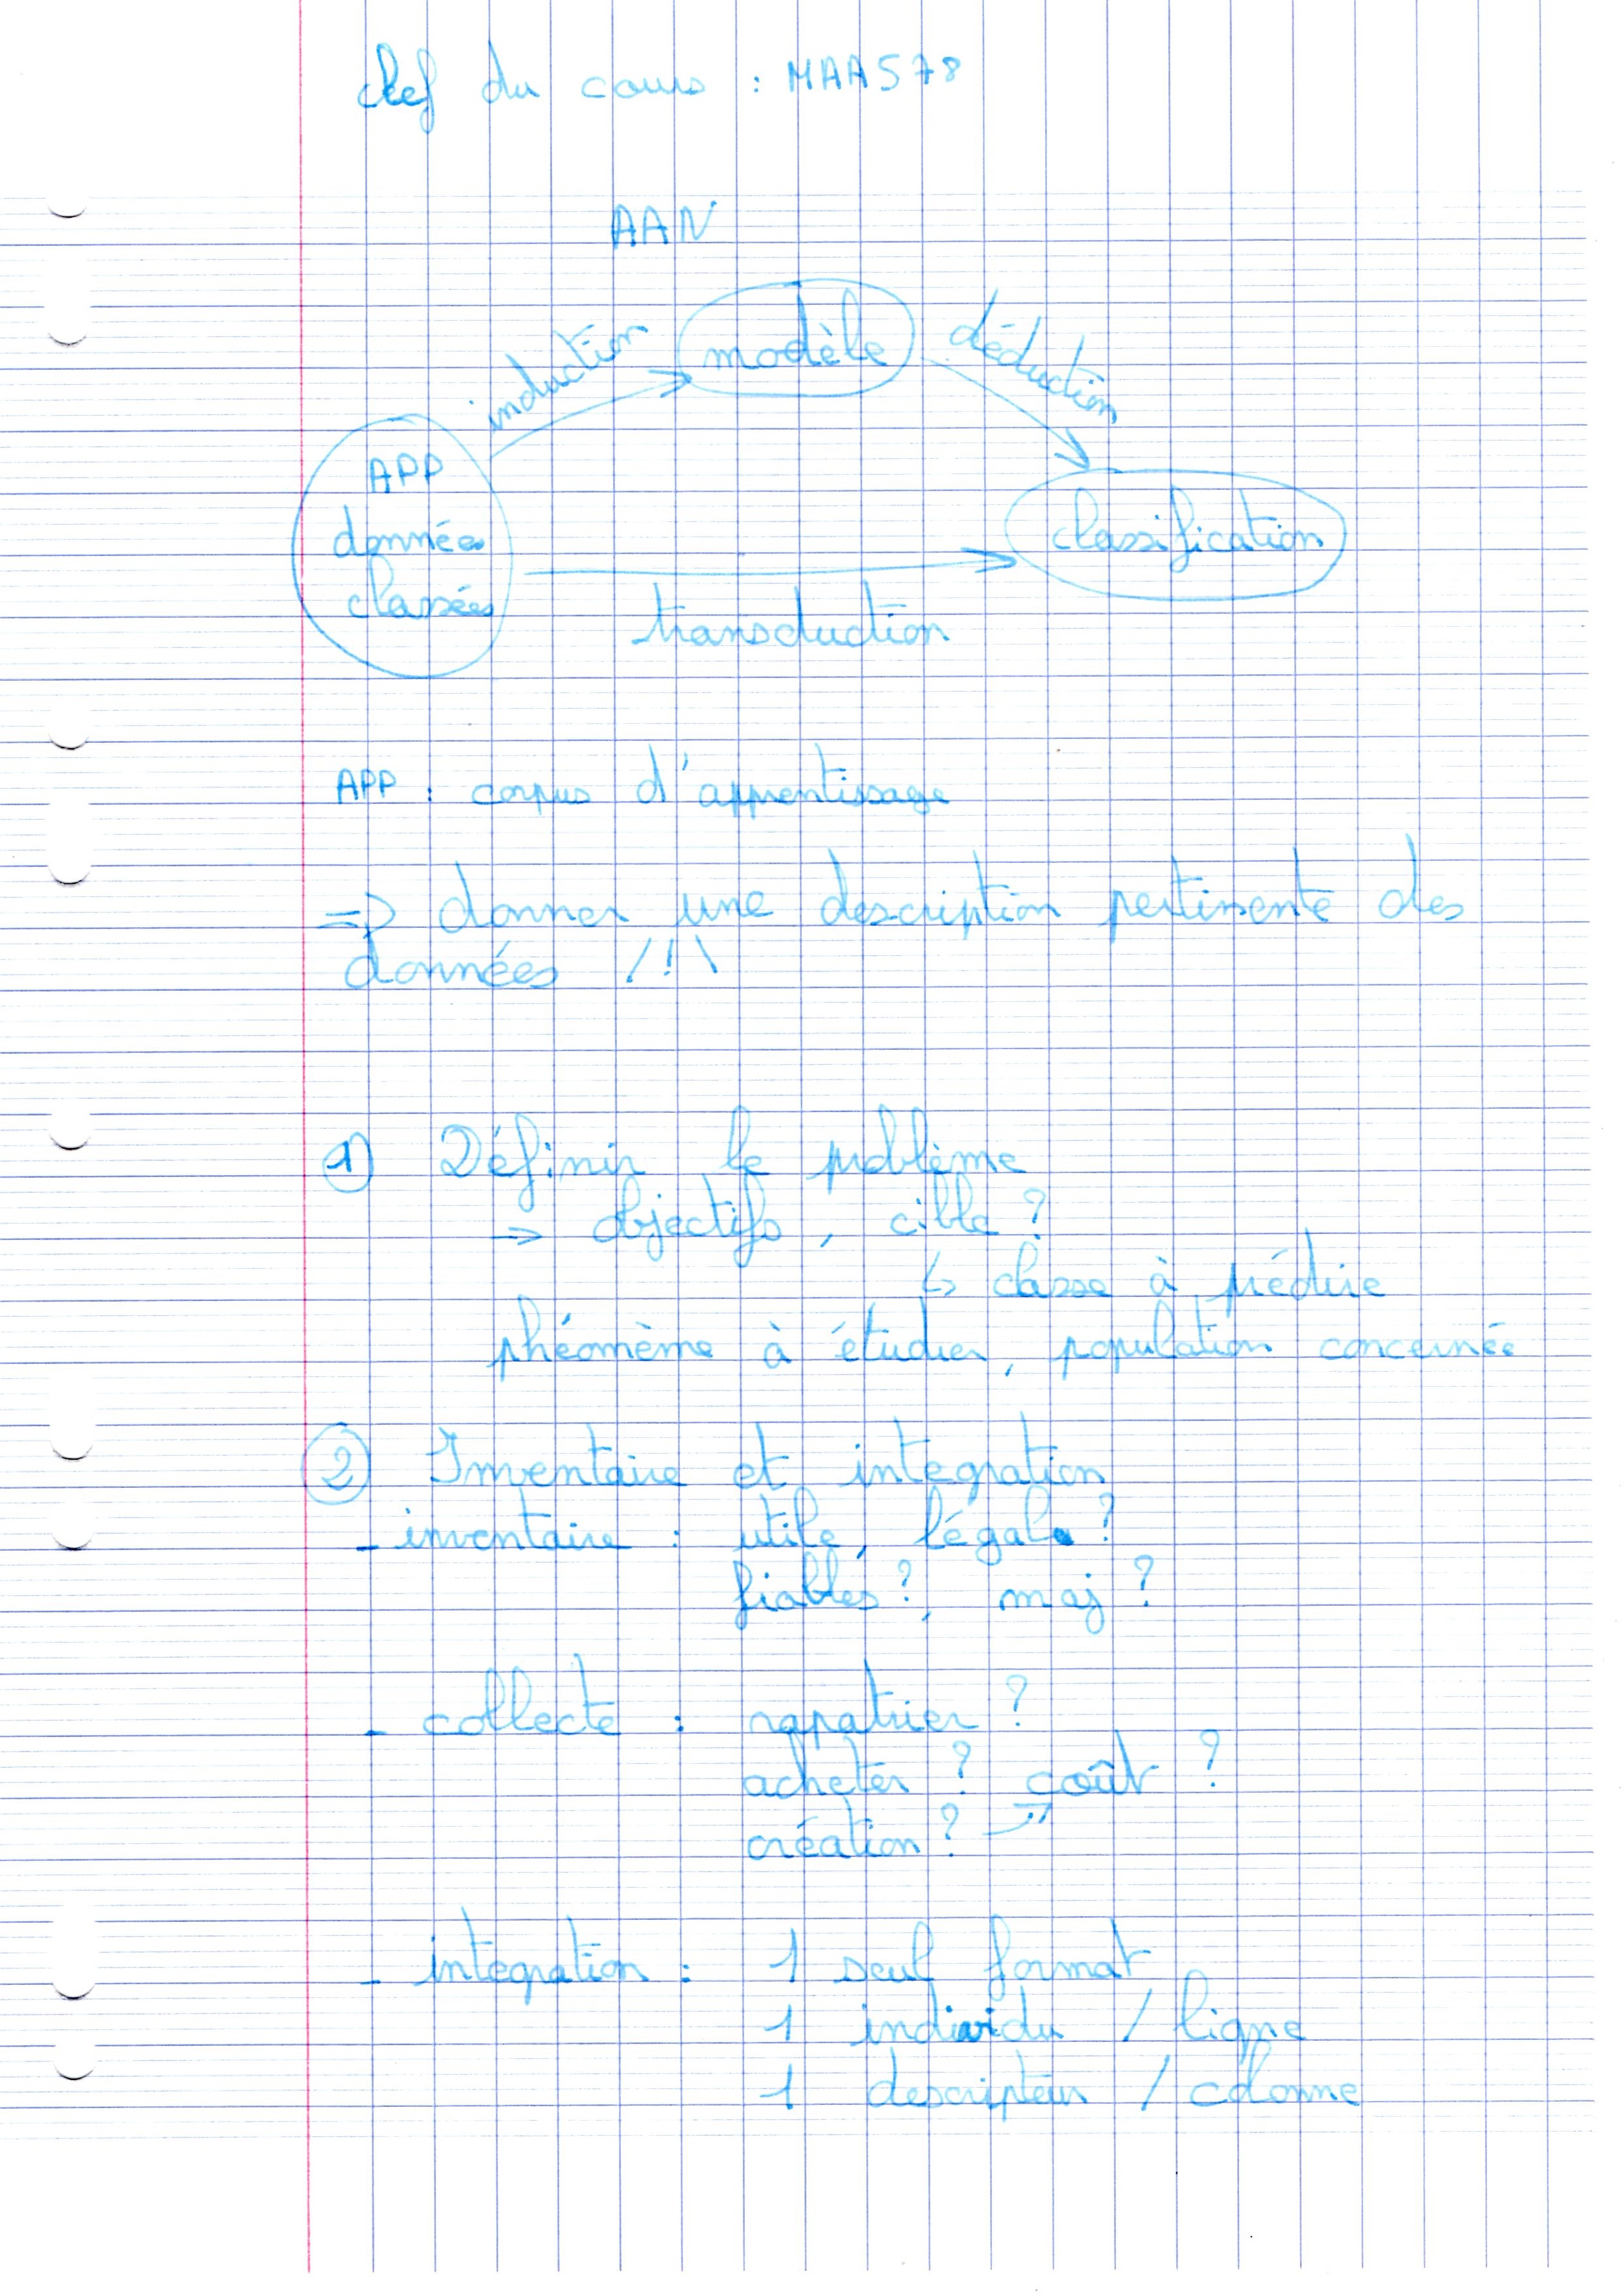 clef du cours : MAA578
AAN
induction
modèle
déduction
APP
données
classées
classification
transduction
APP : corpus d'apprentissage
=> donner une description pertinente des
données /!\
① Définir le problème
→ objectifs, cible ?
↳ classe à prédire
phéomème à étudier, population concernée
② Inventaire et integration
- inventaire : utile, légal ?
fiables ?, maj ?
- collecte : rapatrier ?
acheter ? coût ?
création ? →
- integration : 1 seul format
1 individu / ligne
1 descripteur / colonne